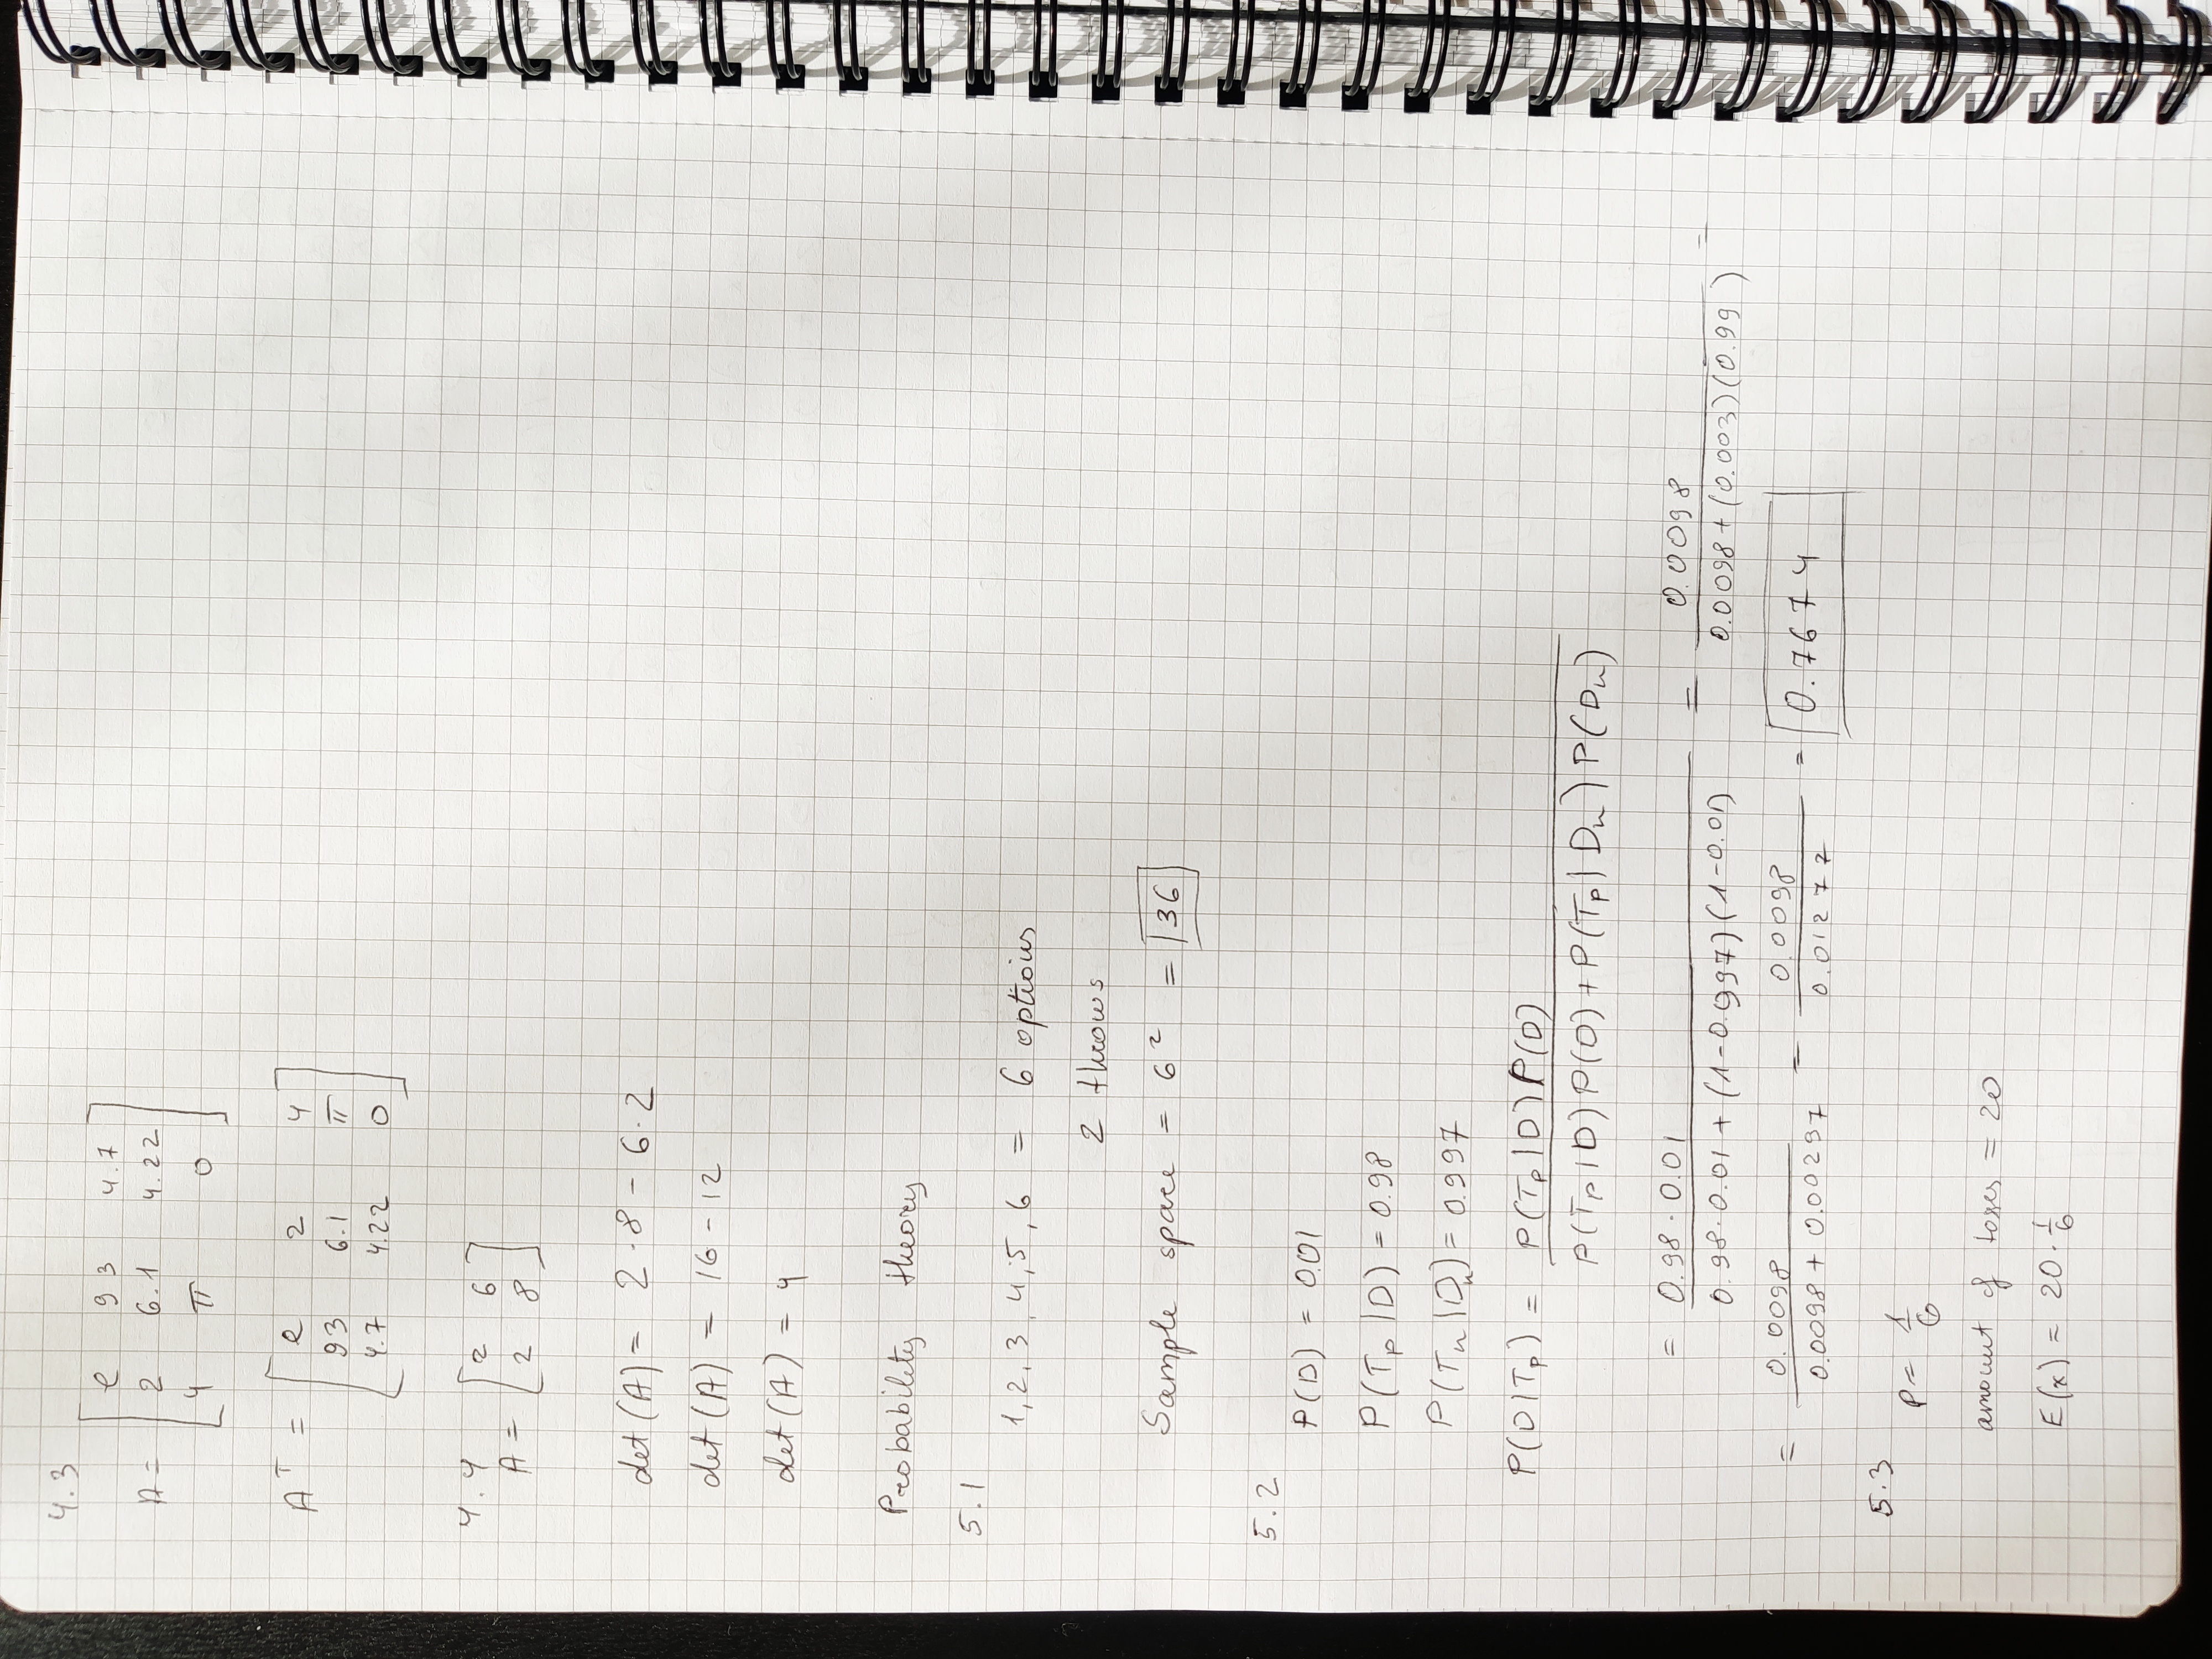 4.3
A = [ e 93 4.7
2 6.1 4.22
4 π 0 ]
Aᵀ = [ e 2 4
93 6.1 π
4.7 4.22 0 ]
4.4
A = [ 2 6
2 8 ]
det(A) = 2·8 - 6·2
det(A) = 16 - 12
det(A) = 4
Probability theory
5.1
1, 2, 3, 4, 5, 6 = 6 options
2 throws
Sample space = 6² = 36
5.2
P(D) = 0.01
P(Tp|D) = 0.98
P(Tn|Dn) = 0.997
P(D|Tp) = P(Tp|D) P(D)
P(Tp|D) P(D) + P(Tp|Dn) P(Dn)
= 0.98·0.01 = 0.0098 =
0.98·0.01 + (1-0.997)(1-0.01) 0.0098 + (0.003)(0.99)
= 0.0098 = 0.0098 = 0.7674
0.0098 + 0.00297 0.01277
5.3
P = 1/6
amount of toses = 20
E(x) = 20·1/6